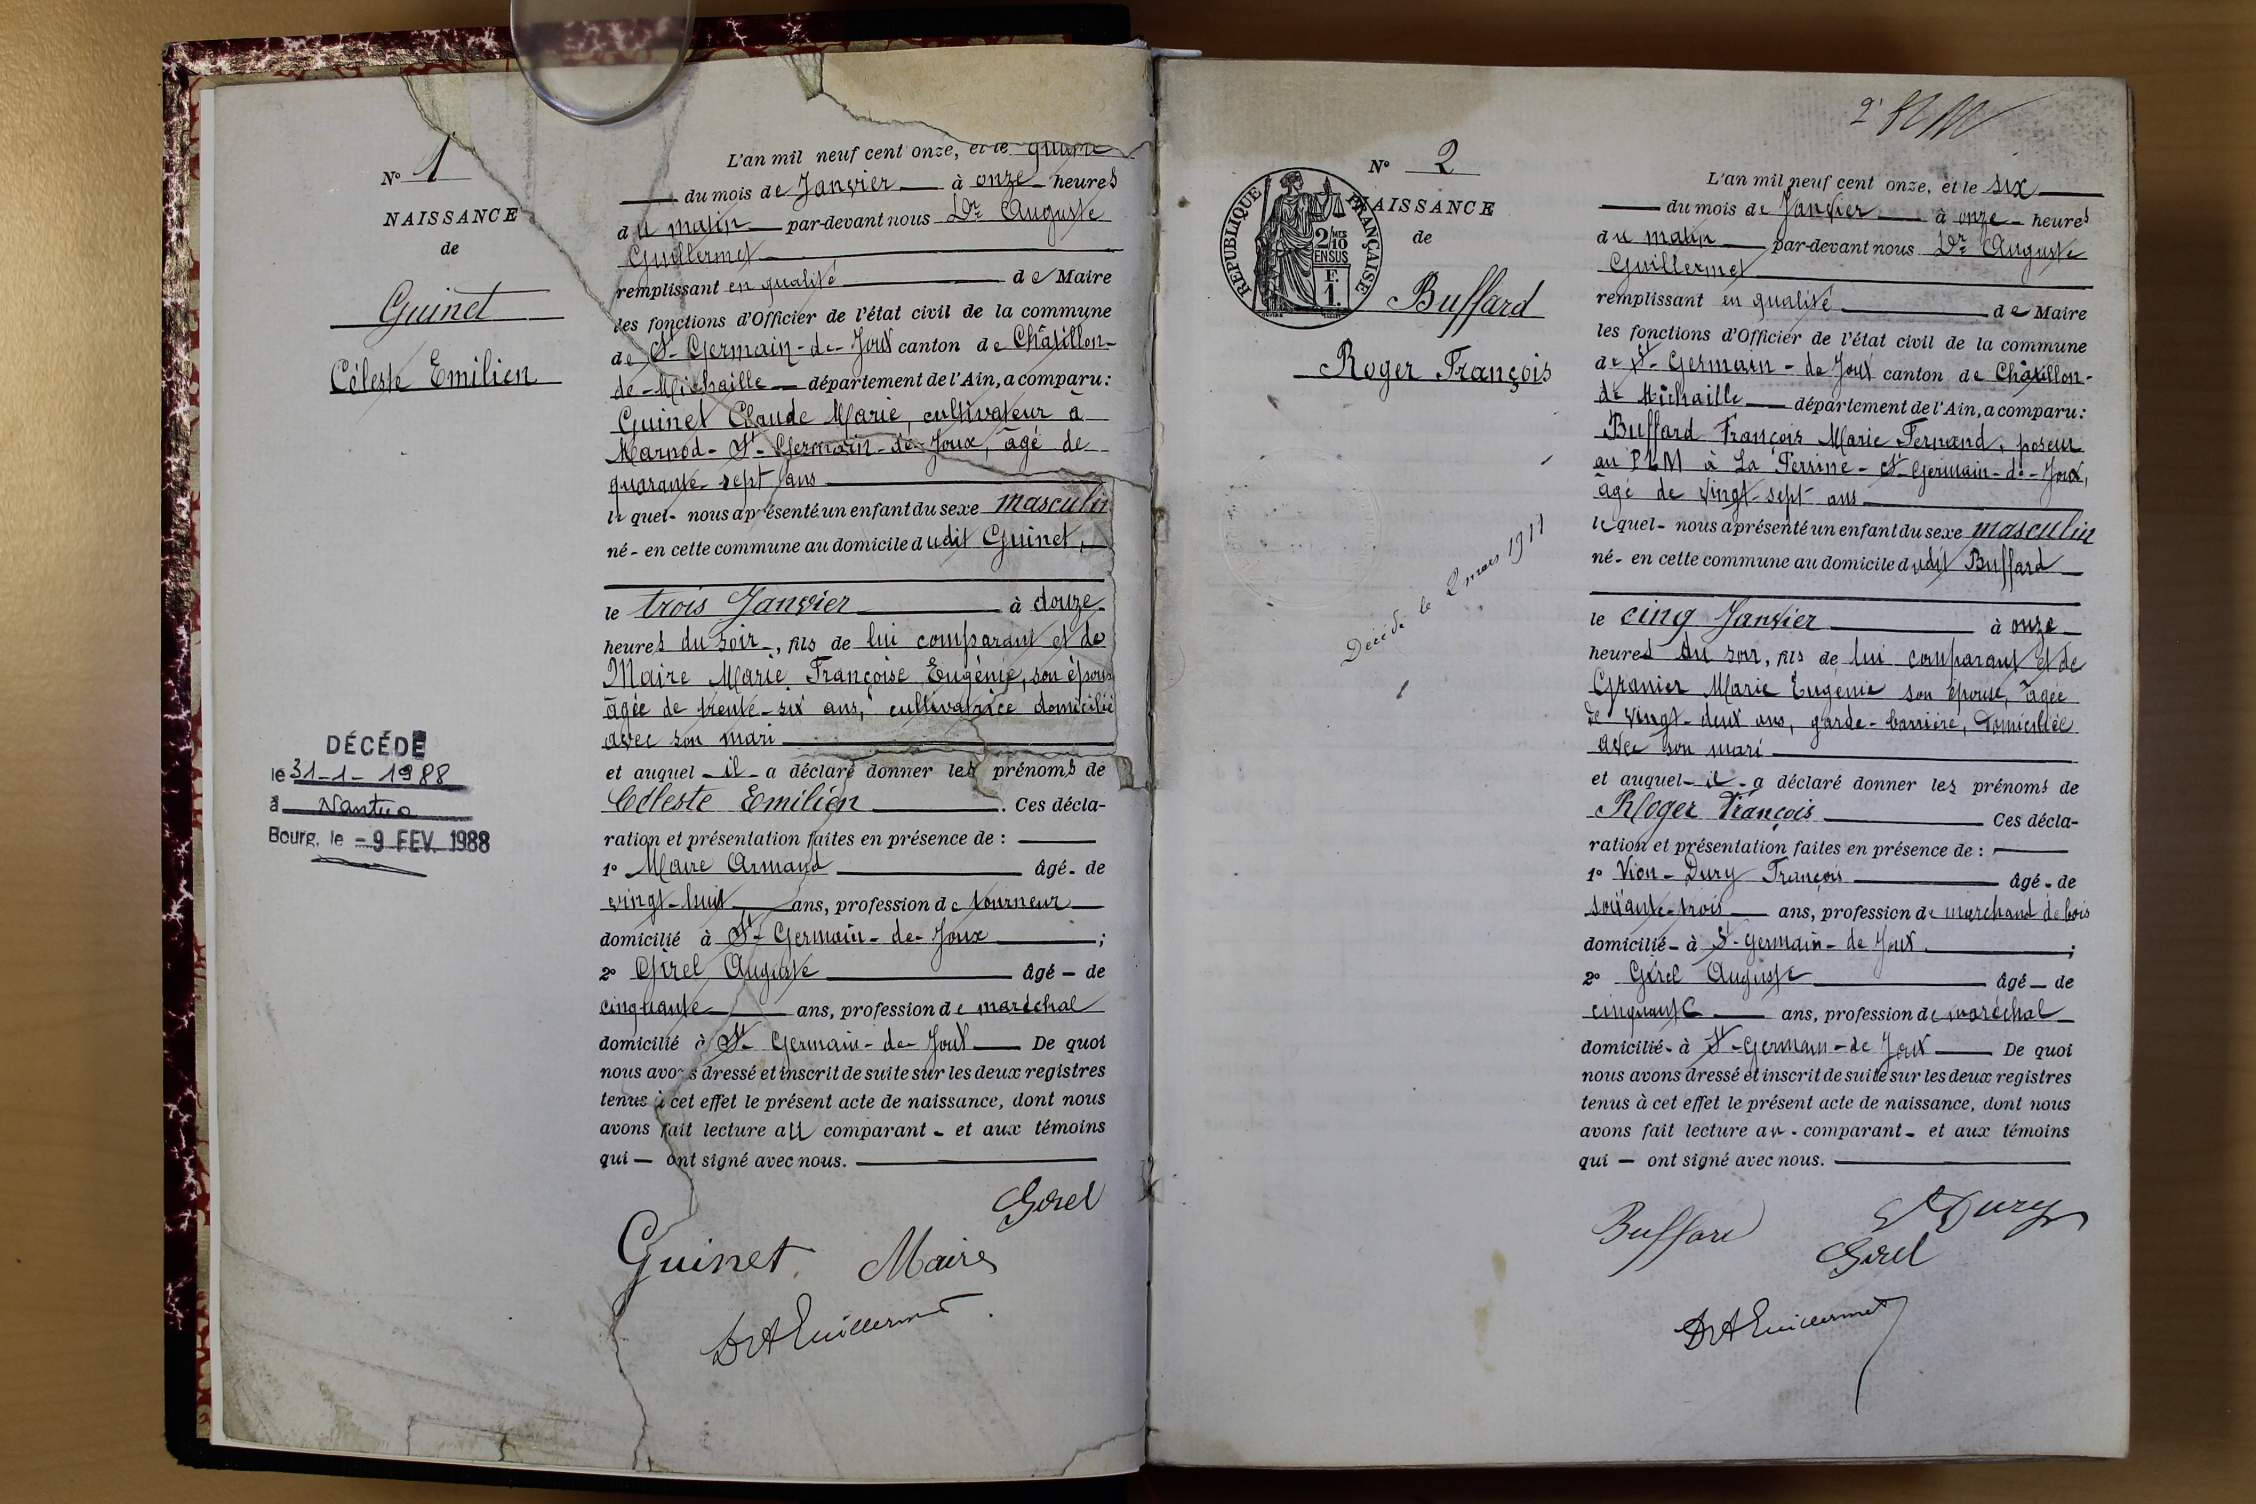 N° 1
NAISSANCE
de
Guinet
Céleste Emilien
DÉCÉDÉ
le 31-1-1988
à Nantua
Bourg, le - 9 FEV. 1988
L'an mil neuf cent onze, et le
du mois de Janvier à onze heures
du matin par-devant nous Dr Auguste
Guillermet
remplissant en qualité de Maire
les fonctions d'Officier de l'état civil de la commune
de St-Germain-de-Joux canton de Châtillon-
de-Michaille département de l'Ain, a comparu:
Guinet Claude Marie, cultivateur à
Marnod-St-Germain-de-Joux, âgé de
quarante-sept ans
lequel nous a présenté un enfant du sexe masculin
né en cette commune au domicile dudit Guinet,
le trois Janvier à douze
heures du soir, fils de lui comparant et de
Maire Marie Françoise Eugénie, son épouse
âgée de trente-six ans, cultivatrice domiciliée
avec son mari
et auquel il a déclaré donner les prénoms de
Céleste Emilien. Ces décla-
ration et présentation faites en présence de :
1° Maire Armand âgé de
vingt-huit ans, profession de tourneur
domicilié à St-Germain-de-Joux ;
2° Girel Auguste âgé de
cinquante ans, profession de maréchal
domicilié à St-Germain-de-Joux De quoi
nous avons dressé et inscrit de suite sur les deux registres
tenus à cet effet le présent acte de naissance, dont nous
avons fait lecture au comparant et aux témoins
qui ont signé avec nous.
Girel
Guinet Maire
Dr A Guillermet
N° 2
NAISSANCE
de
RÉPUBLIQUE FRANÇAISE
2/10
MES
EN SUS
F.
1.
Buffard
Roger François
Décédé le 2 mars 1911
L'an mil neuf cent onze, et le six
du mois de Janvier à onze heures
du matin par-devant nous Dr Auguste
Guillermet
remplissant en qualité de Maire
les fonctions d'Officier de l'état civil de la commune
de St-Germain-de Joux canton de Châtillon-
de Michaille département de l'Ain, a comparu:
Buffard François Marie Fernand, poseur
au PLM à La Perrine-St-Germain-de-Joux,
âgé de vingt-sept ans
lequel nous a présenté un enfant du sexe masculin
né en cette commune au domicile dudit Buffard
le cinq Janvier à onze
heures du soir, fils de lui comparant et de
Granier Marie Eugénie son épouse, âgée
de vingt-deux ans, garde-barrière, domiciliée
avec son mari
et auquel il a déclaré donner les prénoms de
Roger François Ces décla-
ration et présentation faites en présence de :
1° Vion-Dury François âgé de
soixante-trois ans, profession de marchand de bois
domicilié à St-Germain-de Joux ;
2° Girel Auguste âgé de
cinquante ans, profession de maréchal
domicilié à St-Germain-de Joux De quoi
nous avons dressé et inscrit de suite sur les deux registres
tenus à cet effet le présent acte de naissance, dont nous
avons fait lecture au comparant et aux témoins
qui ont signé avec nous.
Buffard Dury
Girel
Dr A Guillermet